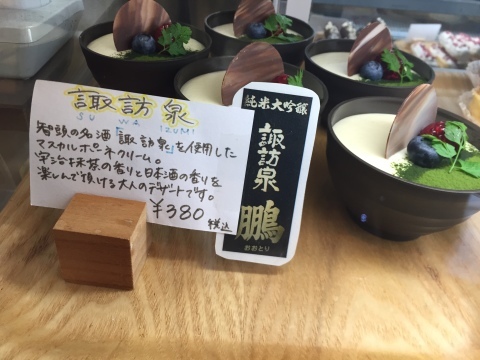 諏訪泉
SU WA IZUMI
智頭の名酒「諏訪泉」を使用した
マスカルポーネクリーム。
宇治抹茶の香りと日本酒の香りを
楽しんで頂ける大人のデザートです。
¥380
税込
純米大吟醸
諏訪泉
鵬
おおとり